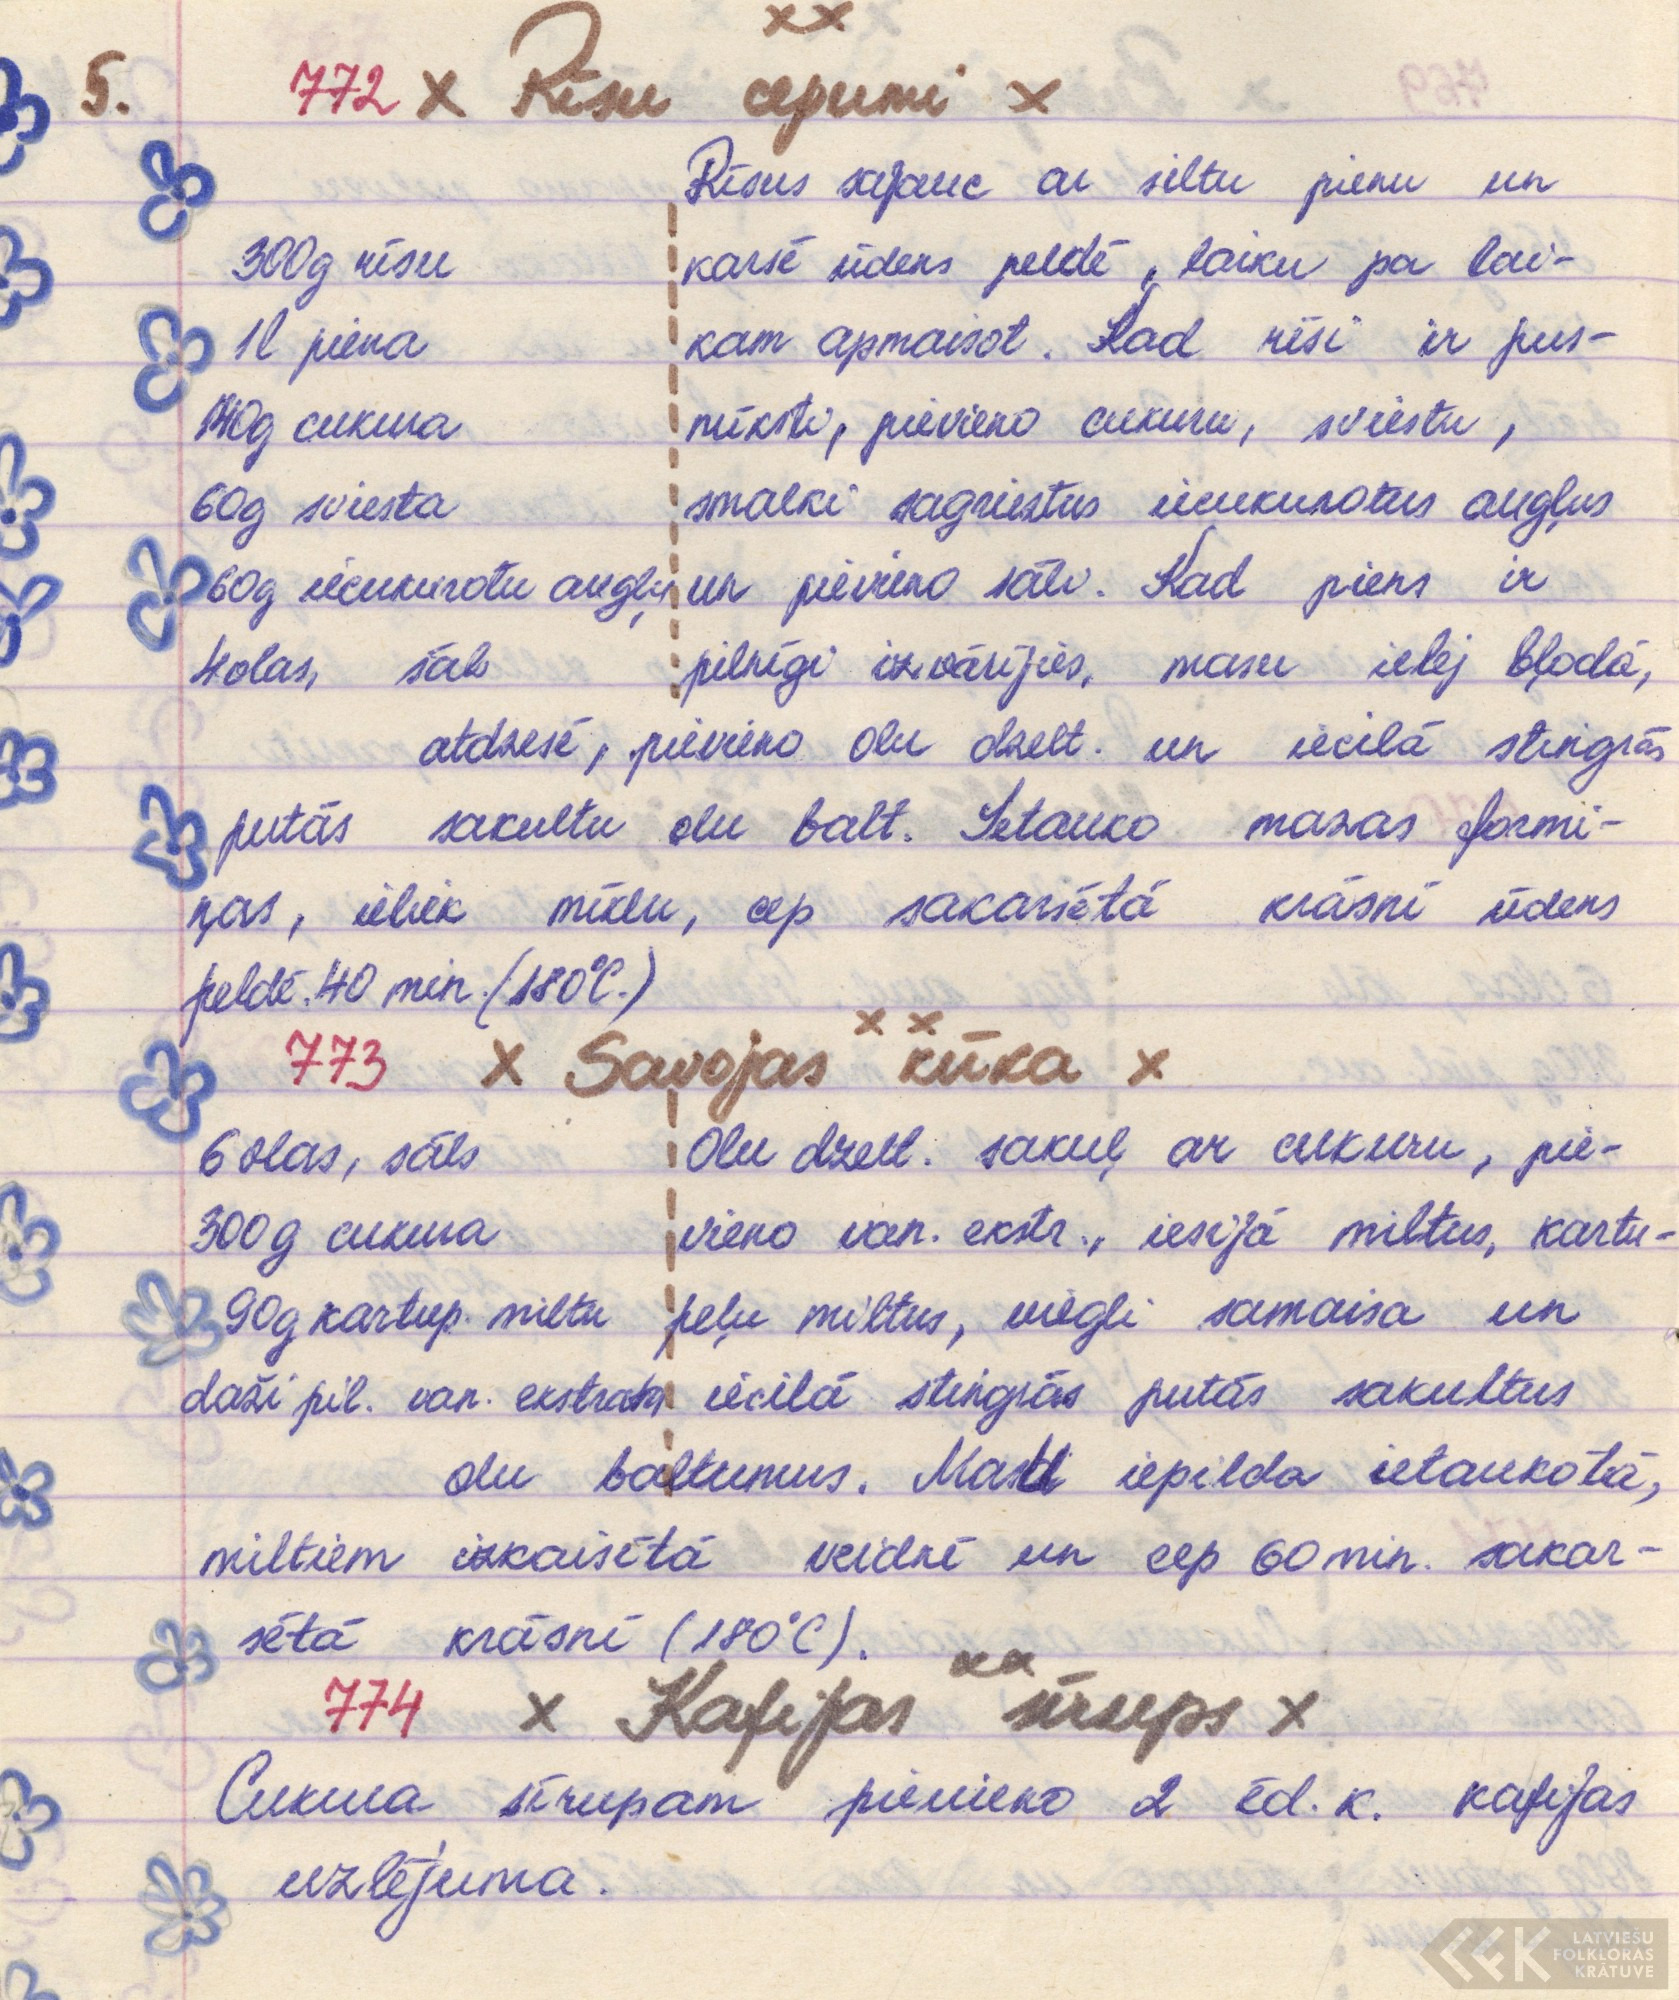 xx
5. 772 x Rīsu cepumi x
Rīsus sajauc ar siltu pienu un
300g rīsu karsē ūdens peldē, laiku pa lai-
1l piena kam apmaisot. Kad rīsi ir pus-
140g cukura mīksti, pievieno cukuru, sviestu,
60g sviesta smalki sagrieztus iecukurotus augļus
60g iecukurotu augļu un pievieno sāli. Kad piens ir
4 olas, sāls pilnīgi izvārījies, masu ielej bļodā,
atdzesē, pievieno olu dzelt. un iecilā stingrās
putās sakultu olu balt. Ietauko mazas formi-
ņas, ieliek mīklu, cep sakarsētā krāsnī ūdens
peldē. 40 min. (180°C.)
xx
773 x Savojas kūka x
6 olas, sāls Olu dzelt. sakuļ ar cukuru, pie-
300g cukura vieno van. ekstr., iesijā miltus, kartu-
90g kartup. miltu peļu miltus, viegli samaisa un
daži pil. van. ekstrakta iecilā stingrās putās sakultus
olu baltumus. Masu iepilda ietaukotā,
miltiem izkaisītā veidnē un cep 60 min. sakar-
sētā krāsnī (180°C).
xx
774 x Kafijas sīrups x
Cukura sīrupam pievieno 2 ēd. k. kafijas
uzlējuma.
LATVIEŠU
FOLKLORAS
KRĀTUVE